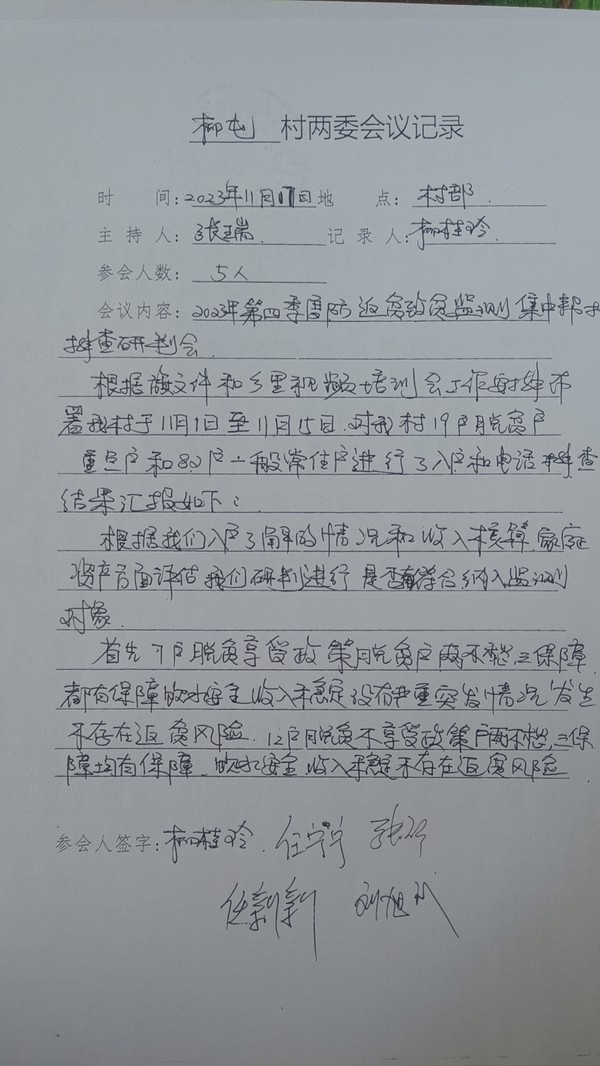 柳屯 村两委会议记录
时 间: 2023年11月17日 地 点: 村部
主持人: 张瑞 记录人: 柳桂玲
参会人数: 5人
会议内容: 2023年第四季度防返贫致贫监测集中帮扶
排查研判会
根据旗文件和乡里视频培训会工作安排布
署我村于11月1日至11月15日.对我村19户脱贫户
重点户和80户一般常住户进行了入户和电话排查
结果汇报如下:
根据我们入户了解的情况和收入核算家庭
资产方面评估我们研判进行是否有符合纳入监测
对象.
首先7户脱贫享受政策脱贫户两不愁.三保障
都有保障饮水安全收入稳定没有严重突发情况发生
不存在返贫风险.12户脱贫不享受政策户两不愁.三保
障均有保障.饮水安全.收入稳定不存在返贫风险
参会人签字: 柳桂玲 任宁宁
任新新 刘旭